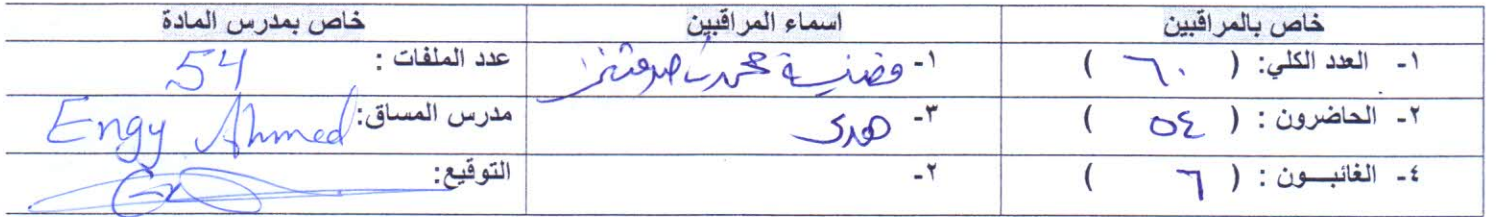 خاص بالمراقبين اسماء المراقبين خاص بمدرس المادة
١- العدد الكلي: ( ٦٠ ) ١- محمد عدد الملفات : 54
٢- الحاضرون : ( ٥٤ ) ٣- هدى مدرس المساق: Engy Ahmed
٤- الغائبـــون : ( ٦ ) ٢- التوقيع: